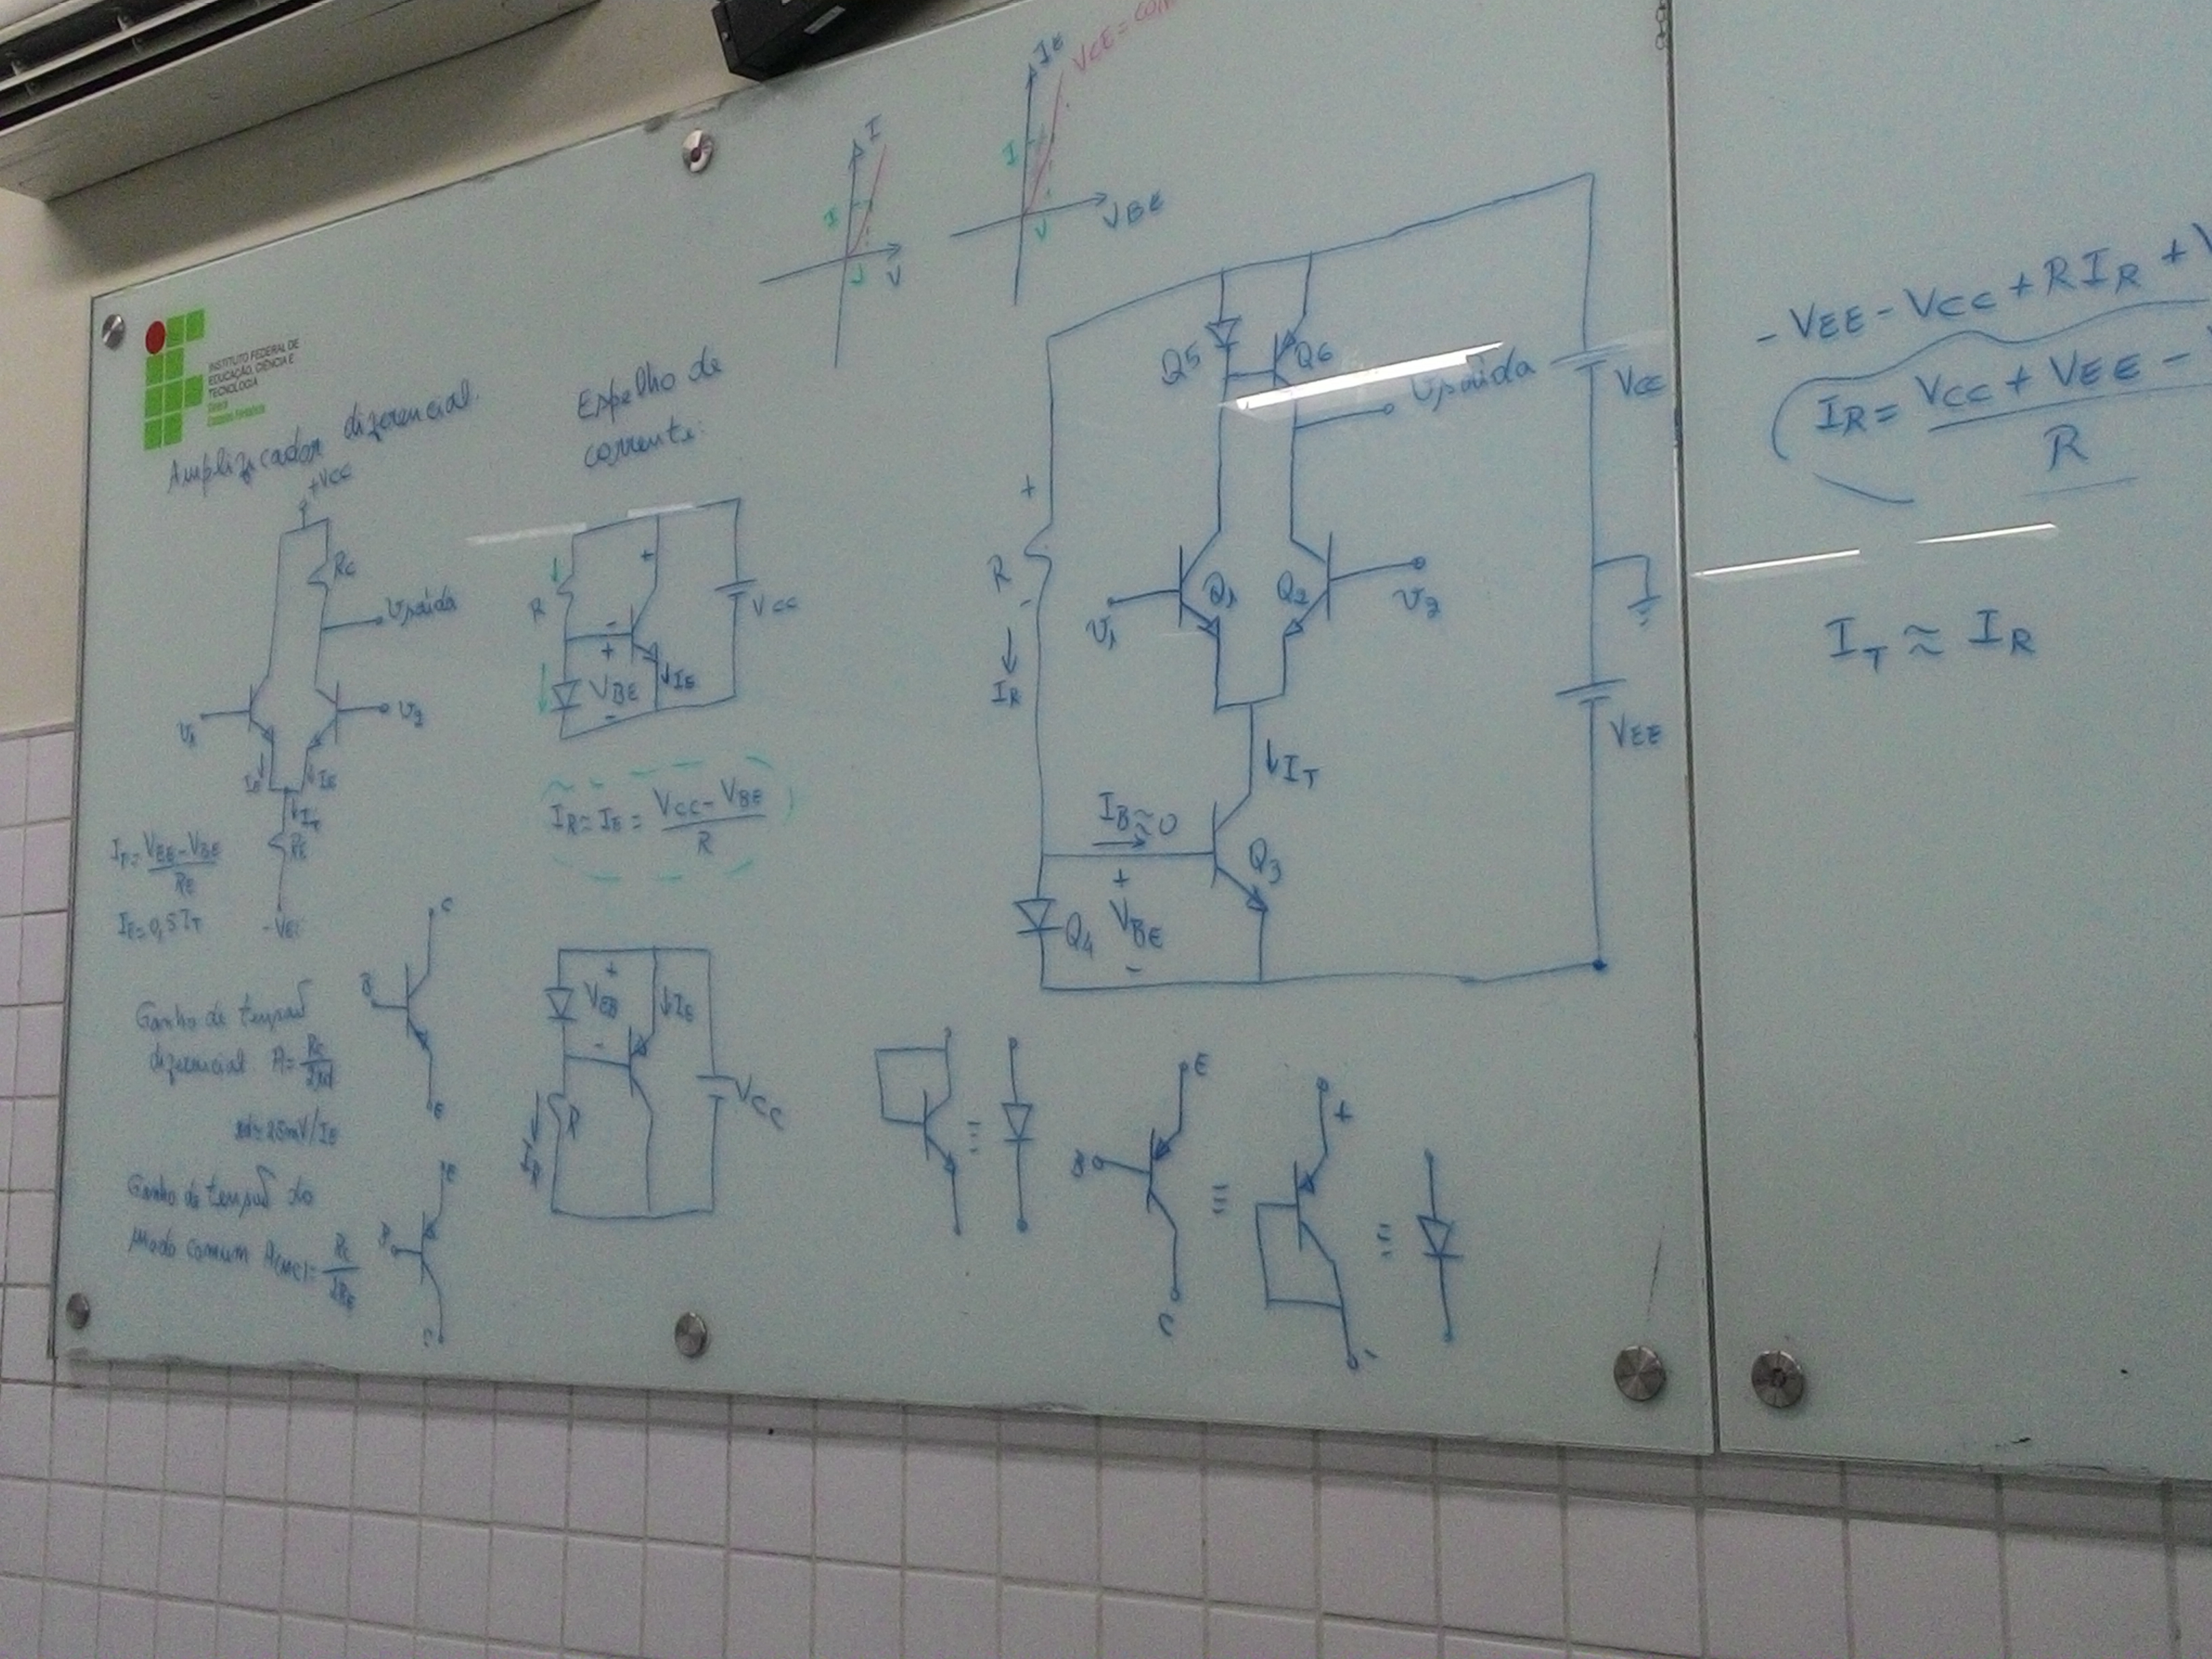 INSTITUTO FEDERAL DE
EDUCAÇÃO, CIÊNCIA E
TECNOLOGIA
Ceará
Amplificador diferencial.
+VCC
RC
Vsaída
V1
V2
IE
IE
IT
RE
IT = VEE - VBE / RE
IE = 0,5 IT
-VEE
Ganho de tensão
diferencial A = RC / 2rd
rd = 25mV/IE
Ganho de tensão do
Modo comum A(MC) = RC / 2RE
C
B
E
E
B
C
Espelho de
corrente:
R
+
-
+
VBE
-
IE
VCC
IR = IE = VCC - VBE / R
+
VEB
-
IE
R
IR
VCC
I
I
V
V
IE
VCE = CON
I
V
VBE
Q5
Q6
Vsaída
VCC
+
R
-
IR
V1
Q1
Q2
V2
IT
VEE
IB ≈ 0
Q3
+
VBE
-
Q4
≡
E
B
C
≡
+
-
≡
-VEE - VCC + RIR + V
IR = VCC + VEE - / R
IT ≈ IR